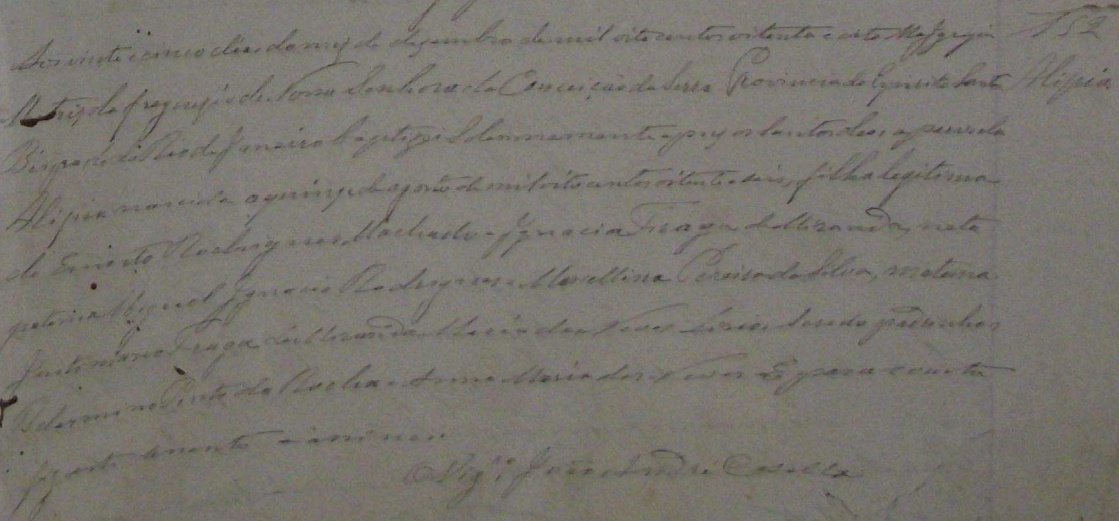 Aos vinte e cinco dias do mez de dezembro de mil oito centos oitenta e sete N'esta Igreja 152
Matriz da freguezia de Nossa Senhora da Conceição da Serra Provincia do Espirito Santo Alipia
Bispado do Rio de Janeiro baptizei Solemnemente e puz os santos oleos a parvula
Alipia nascida a quinze de agosto de mil oito centos oitenta e seis, filha legitima
de Ernesto Rodrigues Machado e Ignacia Fraga de Miranda, neta
paterna Miguel Ignacio Rodrigues e Marcellina Pereira da Silva, materna
Fraga de Miranda e Maria das Neves Sendo padrinhos
Belarmino Pinto da Rocha e Anna Maria das Neves E para constar
fiz este assento e assinei.
O Vigr.º João André Casella